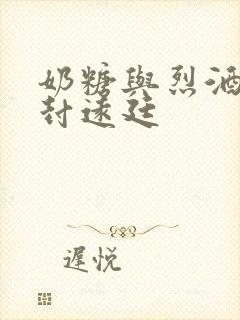 奶糖與烈酒
封遠廷
遲悅